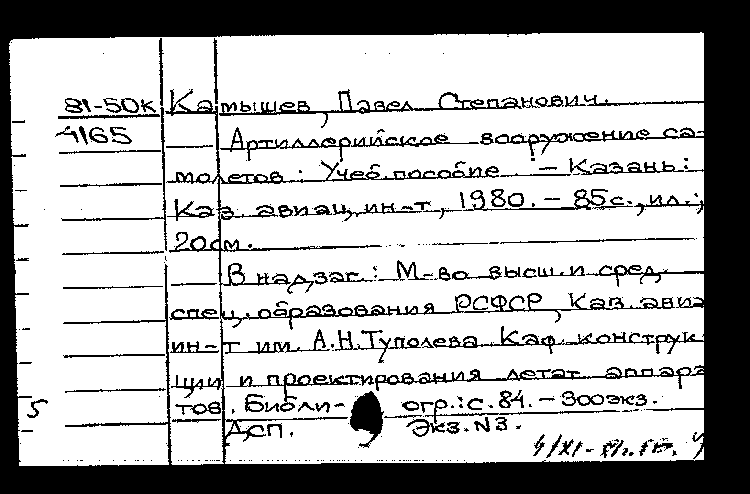 81-50к Камышев, Павел Степанович.
4165 Артиллерийское вооружение са-
молетов : Учеб. пособие. – Казань :
Каз. авиац. ин-т, 1980. – 85 с., ил.;
20 см.
В надзаг.: М-во высш. и сред.
спец. образования РСФСР, Каз. авиа
ин-т им. А.Н. Туполева. Каф. конструк
ции и проектирования летат. аппара
5 тов. Библи- огр.: с. 84. – 300 экз.
Дсп. Экз. N3.